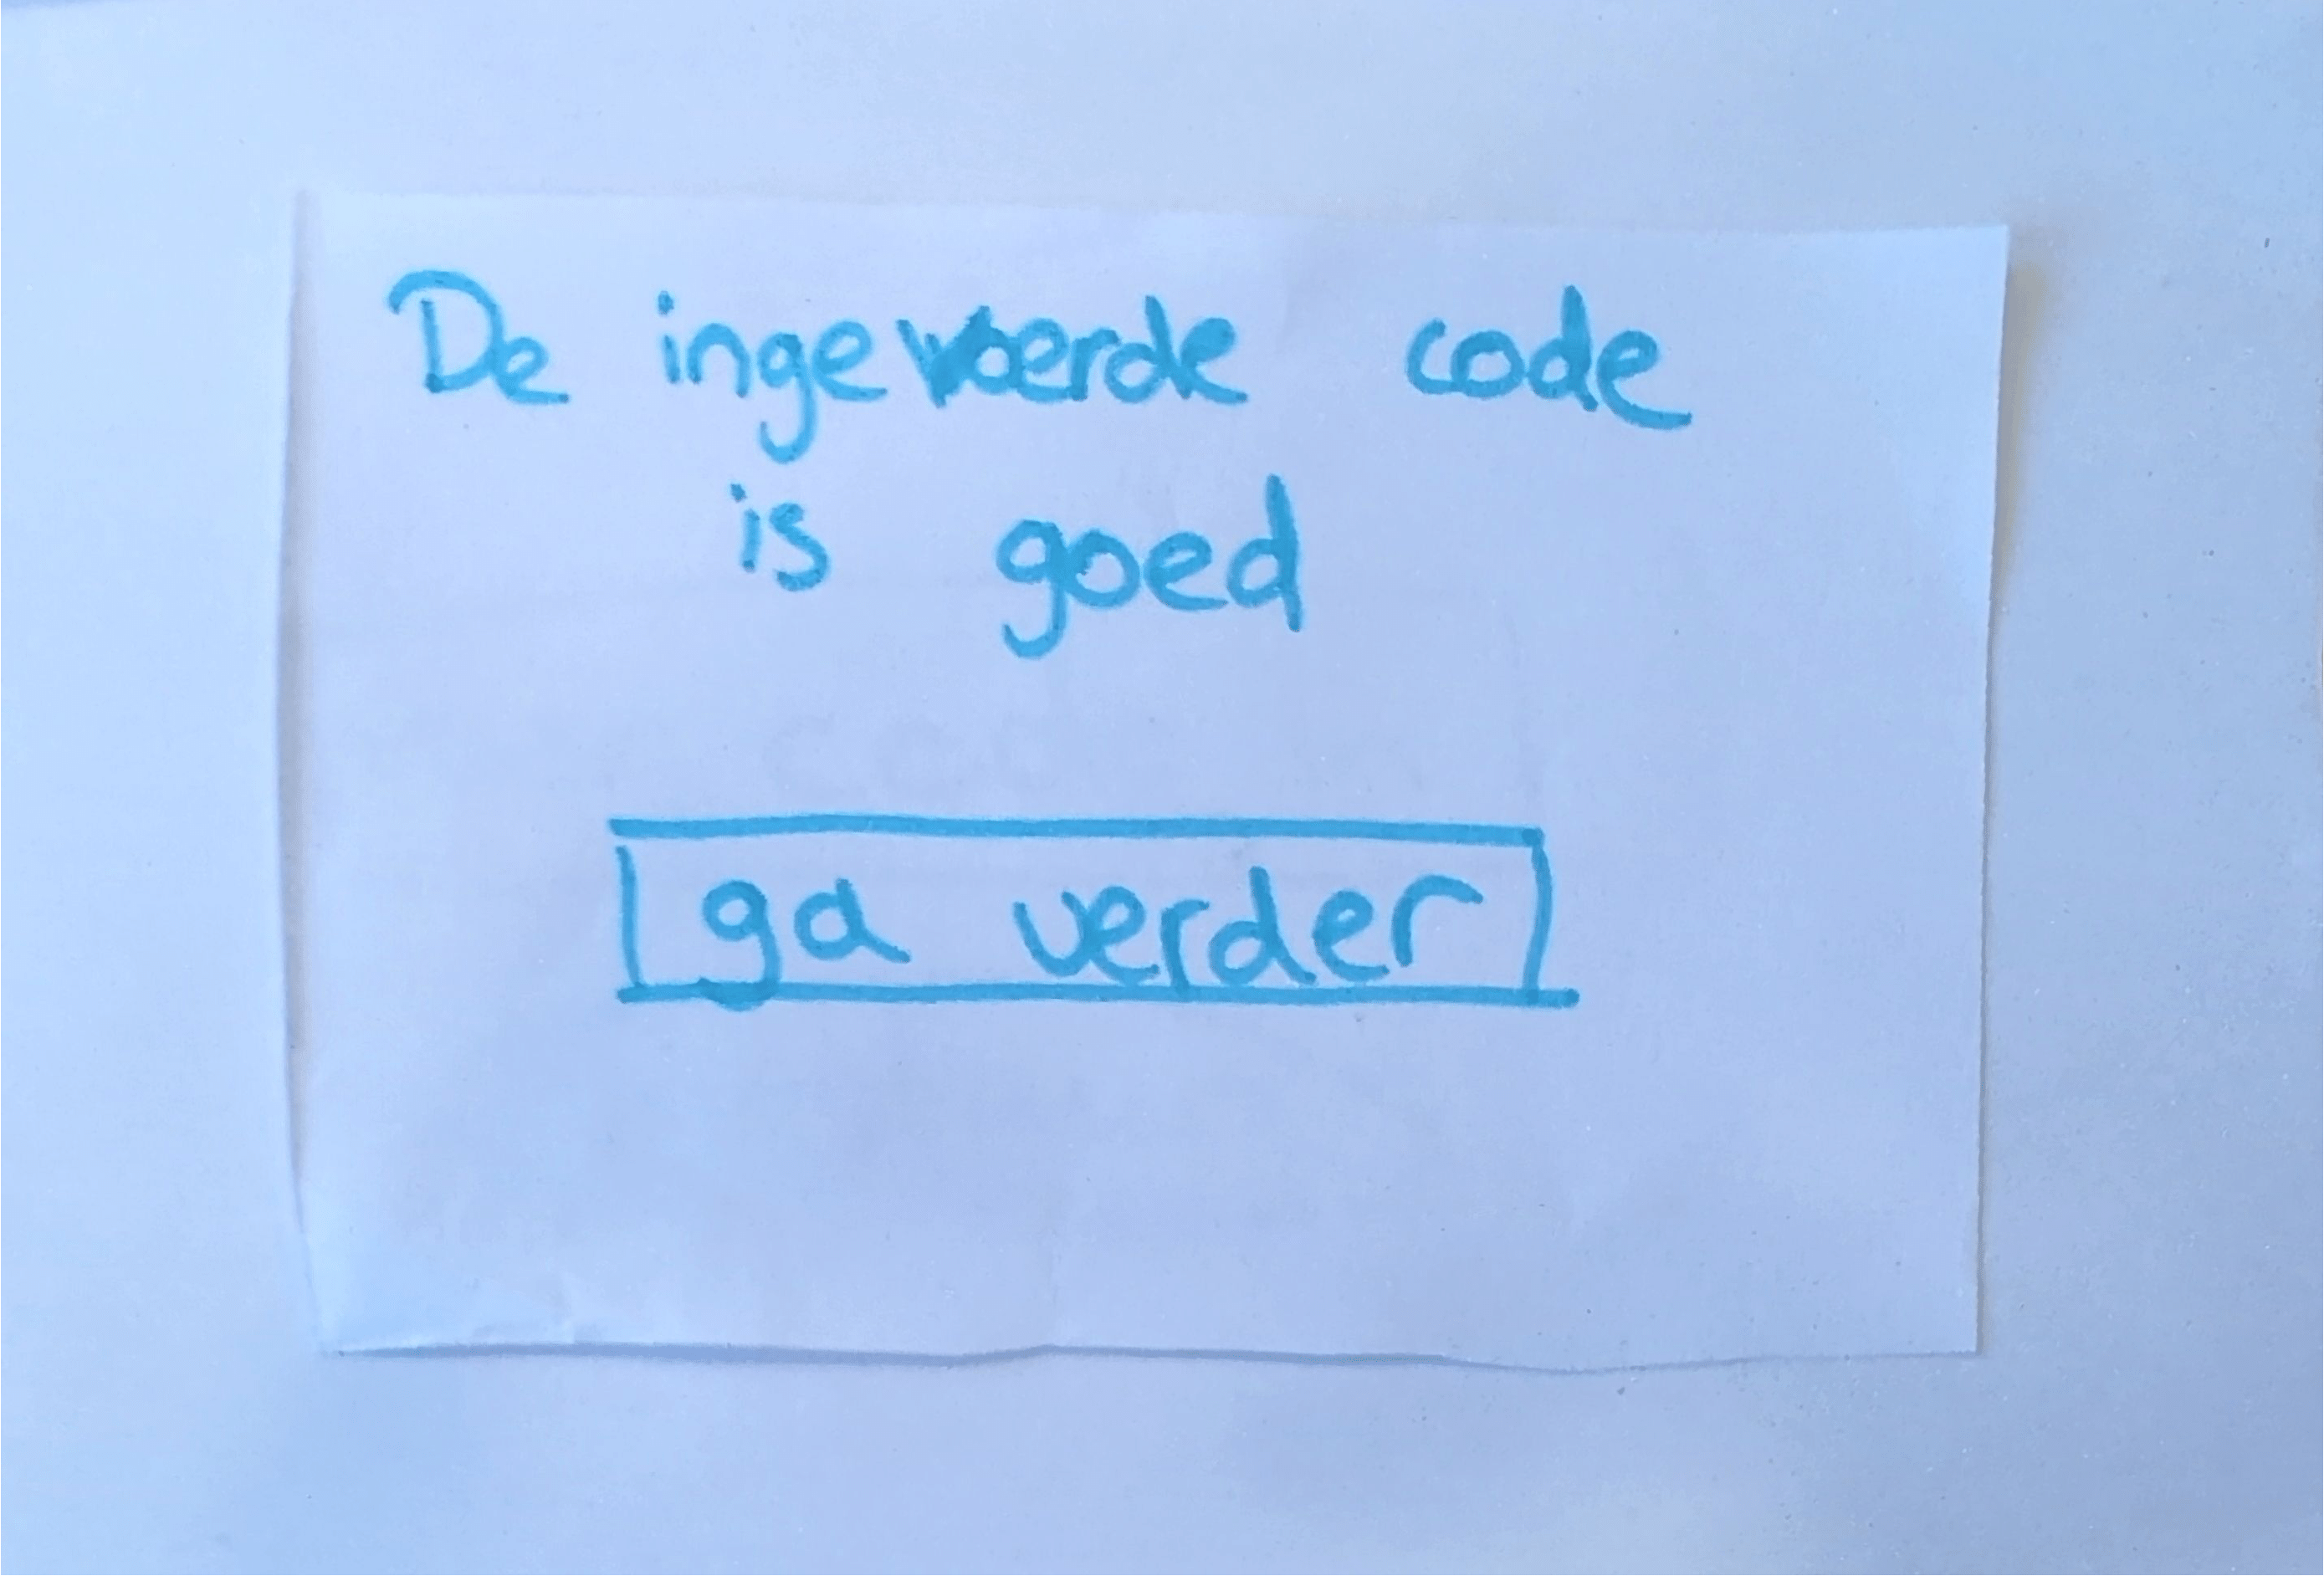 De ingevoerde code
is goed
ga verder